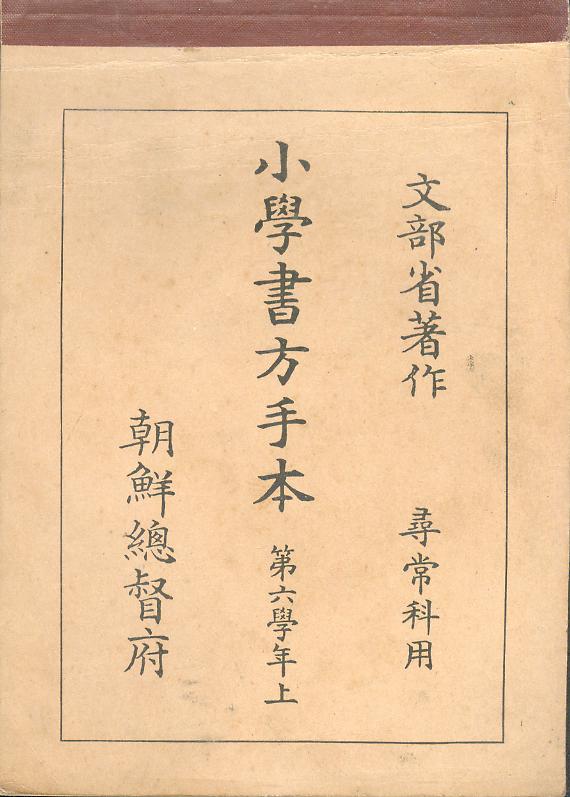 文部省著作 尋常科用
小學書方手本 第六學年上
朝鮮總督府